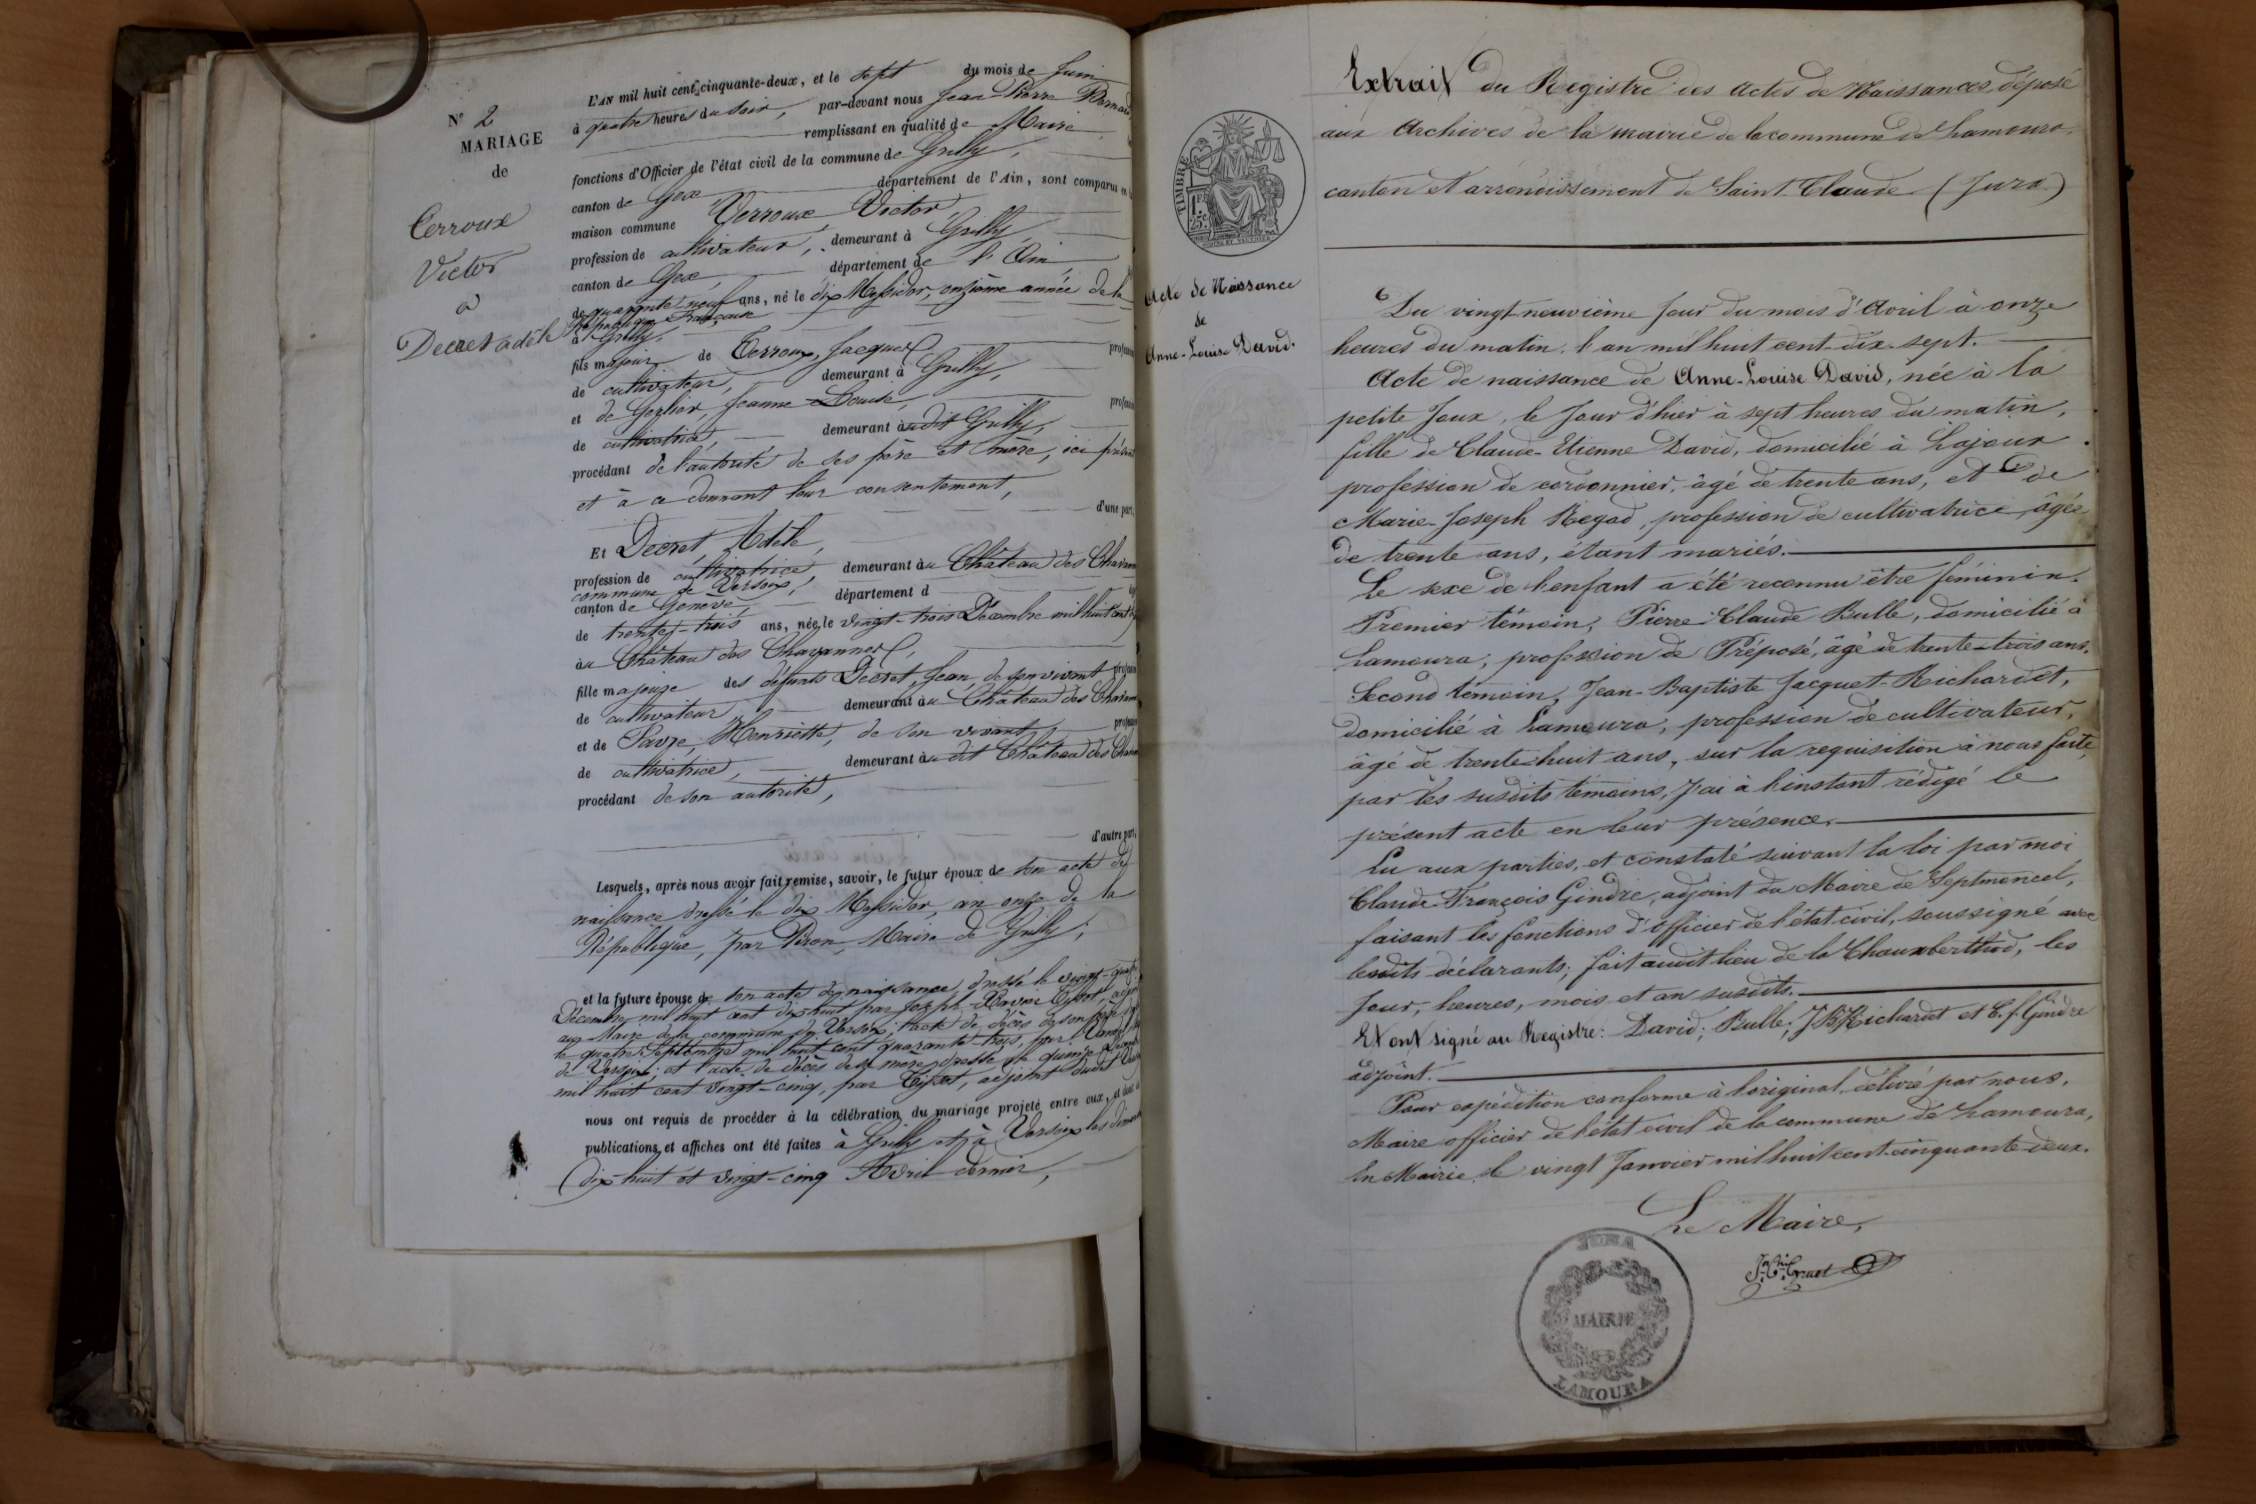 N° 2
MARIAGE
de
Verroux
Victor
à
Decret adèle
L'AN mil huit cent cinquante-deux, et le sept du mois de Juin
à quatre heures du soir, par-devant nous Jean Pierre
remplissant en qualité de Maire
fonctions d'Officier de l'état civil de la commune de Grilly,
canton de Gex département de l'Ain, sont comparus en la
maison commune Verroux Victor,
profession de cultivateur, demeurant à Grilly
canton de Gex, département de l'Ain,
de quarante-neuf ans, né le dix Messidor, onzième année de la
République Française
à Grilly,
fils majeur de Verroux, Jacques
de cultivateur, demeurant à Grilly,
et de Jeanne Louise,
de cultivatrice, demeurant audit Grilly,
procédant de l'autorité de ses père et mère, ici présents
et à ce donnant leur consentement,
d'une part,
Et Decret, Adèle,
profession de cultivatrice, demeurant au Château des
commune de Versoix,
canton de Genève, département d
de trente-trois ans, née le vingt-trois Décembre mil huit cent
au Château des Chavannes,
fille majeure des défunts Decret, Jean, de son vivant
de cultivateur demeurant au Château des
et de Favre, Henriette, de son vivant
de cultivatrice, demeurant audit Château des
procédant de son autorité,
d'autre part,
Lesquels, après nous avoir fait remise, savoir, le futur époux de son acte de
naissance dressé le dix Messidor, an onze de la
République, par Maire de Grilly;
et la future épouse de son acte de naissance, dressé le vingt-quatre
Décembre mil huit cent dix huit par Joseph Xavier
au Maire de la commune de Versoix; l'acte de décès de son père
le quatre Septembre mil huit cent quarante trois, par
de Versoix; et l'acte de décès de sa mère dressé le quinze
mil huit cent vingt-cinq, par adjoint
nous ont requis de procéder à la célébration du mariage projeté entre eux, et dont
publications et affiches ont été faites à Grilly et à Versoix les dimanches
dix huit et vingt-cinq Avril dernier,
TIMBRE
1F
25c
Acte de Naissance
de
Anne-Louise David.
Extrait du Registre des actes de Naissances déposé
aux Archives de la mairie de la commune de Lamoura,
canton et arrondissement de Saint-Claude (Jura)
Du vingt-neuvième jour du mois d'Avril à onze
heures du matin, l'an mil huit cent dix-sept.
Acte de naissance de Anne-Louise David, née à la
petite Joux, le jour d'hier à sept heures du matin,
fille de Claude-Etienne David, domicilié à Lajoux
profession de cordonnier, âgé de trente ans, et de
Marie-Joseph Regad, profession de cultivatrice, âgée
de trente ans, étant mariés.
Le sexe de l'enfant a été reconnu être féminin.
Premier témoin, Pierre-Claude Bulle, domicilié à
Lamoura, profession de Préposé, âgé de trente-trois ans.
Second témoin, Jean-Baptiste Jacquet-Richardet,
domicilié à Lamoura, profession de cultivateur,
âgé de trente-huit ans, sur la requisition à nous faite
par les susdits témoins, j'ai à l'instant rédigé le
présent acte en leur présence.
Lu aux parties, et constaté suivant la loi par moi
Claude-François Gindre, adjoint du Maire de Septmoncel,
faisant les fonctions d'officier de l'état civil, soussigné avec
lesdits déclarants; fait audit lieu de la Chaumberthod, les
jour, heures, mois et an susdits.
Et ont signé au Registre: David; Bulle; J.B. Richardet et C. f. Gindre
adjoint.
Pour expédition conforme à l'original délivré par nous,
Maire officier de l'état civil de la commune de Lamoura,
En Mairie, le vingt Janvier mil huit cent cinquante-deux.
Le Maire,
JURA
MAIRIE
LAMOURA